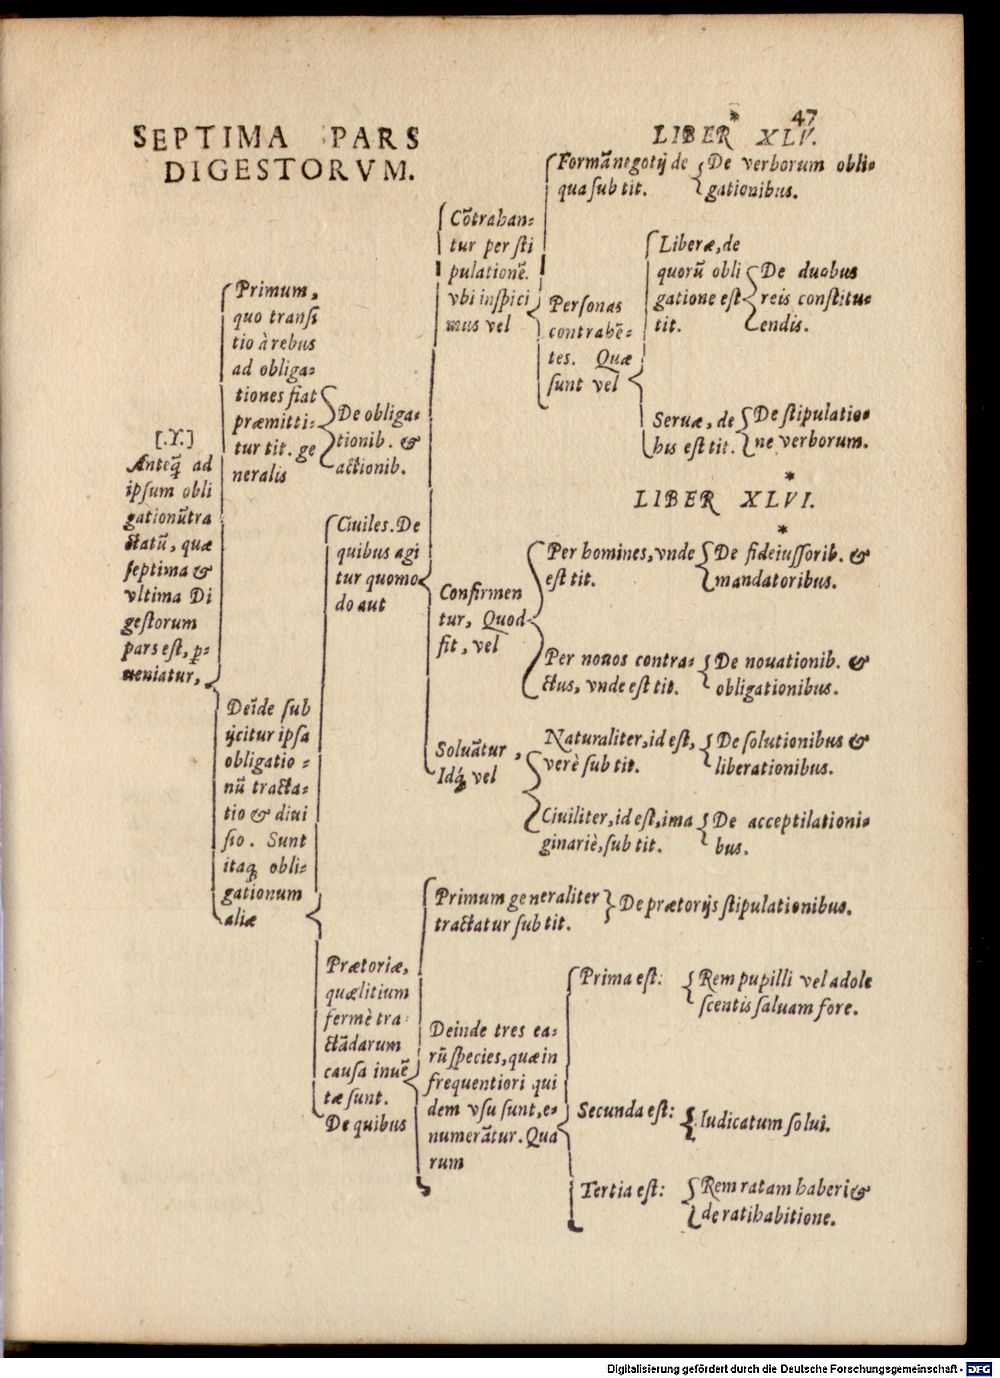 47
SEPTIMA PARS
DIGESTORVM.
LIBER XLV.
*
[.Y.]
Anteq̃ ad
ipsum obli
gationũ tra
ctatũ, quæ
septima &
vltima Di
gestorum
pars est, p=
ueniatur,
Primum,
quo transi
tio à rebus
ad obliga=
tiones fiat
præmitti=
tur tit. ge
neralis
De obliga=
tionib. &
actionib.
Deīde sub
ijcitur ipsa
obligatio=
nũ tracta=
tio & diui
sio. Sunt
itaq; obli=
gationum
aliæ
Ciuiles. De
quibus agi
tur quomo
do aut
Cōtrahan=
tur per sti
pulationē.
vbi inspici
mus vel
Formã negotij de
qua sub tit.
De verborum obli=
gationibus.
Personas
contrahē=
tes. Quæ
sunt vel
Liberæ, de
quorũ obli
gatione est
tit.
De duobus
reis constitu=
endis.
Seruæ, de
his est tit.
De stipulatio=
ne verborum.
*
LIBER XLVI.
*
Confirmen
tur, Quod
fit, vel
Per homines, vnde
est tit.
De fideiussorib. &
mandatoribus.
Per nouos contra=
ctus, vnde est tit.
De nouationib. &
obligationibus.
Soluãtur,
Idq; vel
Naturaliter, id est,
verè sub tit.
De solutionibus &
liberationibus.
Ciuiliter, id est, ima
ginariè, sub tit.
De acceptilationi=
bus.
Prætoriæ,
quæ litium
fermè tra=
ctãdarum
causa inuē
tæ sunt.
De quibus
Primum generaliter
tractatur sub tit.
De prætorijs stipulationibus.
Deinde tres ea=
rũ species, quæ in
frequentiori qui
dem vsu sunt, e=
numerãtur. Qua
rum
Prima est:
Rem pupilli vel adole
scentis saluam fore.
Secunda est:
Iudicatum solui.
Tertia est:
Rem ratam haberi &
de ratihabitione.
Digitalisierung gefördert durch die Deutsche Forschungsgemeinschaft - DFG